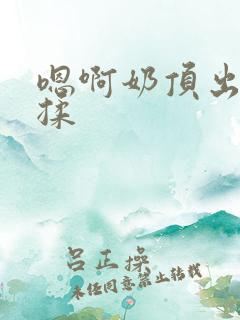 嗯啊奶頂出
揉
吕正操
未经同意禁止转载